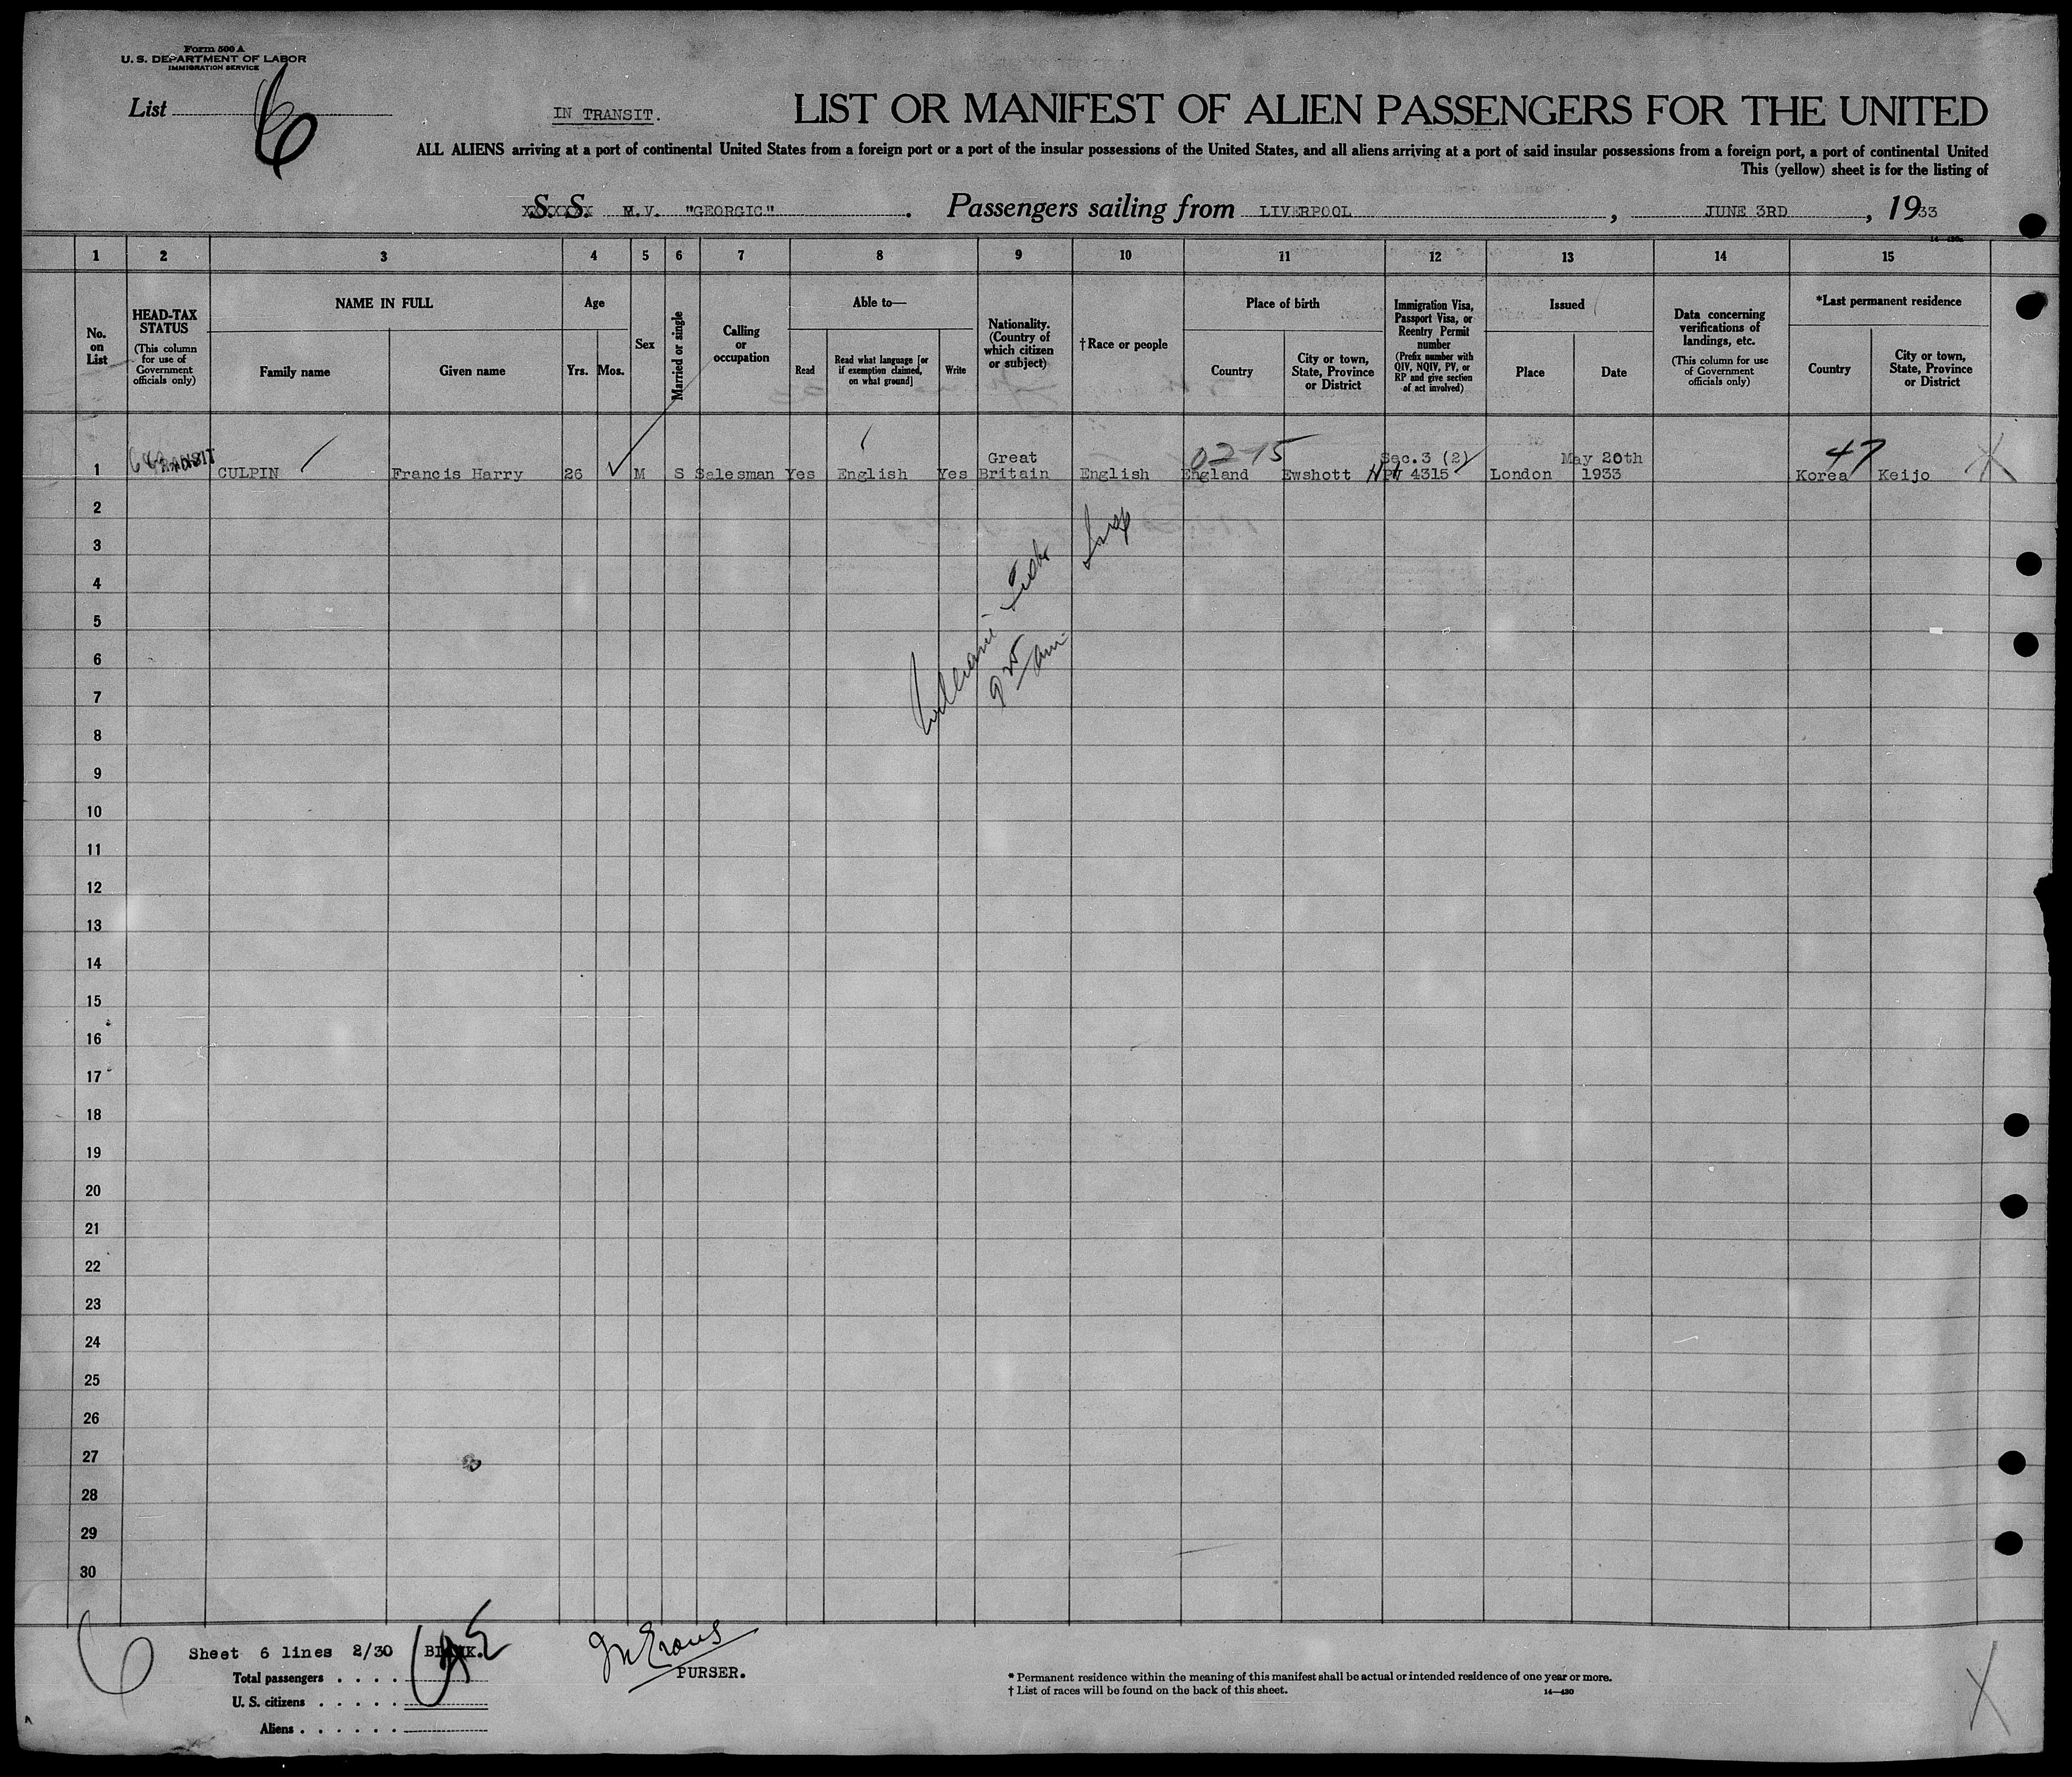 Form 500 A
U. S. DEPARTMENT OF LABOR
IMMIGRATION SERVICE
List 6
IN TRANSIT.
LIST OR MANIFEST OF ALIEN PASSENGERS FOR THE UNITED
ALL ALIENS arriving at a port of continental United States from a foreign port or a port of the insular possessions of the United States, and all aliens arriving at a port of said insular possessions from a foreign port, a port of continental United
This (yellow) sheet is for the listing of
S. S. M.V. "GEORGIC" . Passengers sailing from LIVERPOOL , JUNE 3RD , 1933
1 2 3 4 5 6 7 8 9 10 11 12 13 14 15
No. on List
HEAD-TAX STATUS
(This column for use of Government officials only)
NAME IN FULL
Family name
Given name
Age
Yrs. Mos.
Sex
Married or single
Calling or occupation
Able to—
Read
Read what language [or if exemption claimed, on what ground]
Write
Nationality. (Country of which citizen or subject)
†Race or people
Place of birth
Country
City or town, State, Province or District
Immigration Visa, Passport Visa, or Reentry Permit number
(Prefix number with QIV, NQIV, PV, or RP and give section of act involved)
Issued
Place
Date
Data concerning verifications of landings, etc.
(This column for use of Government officials only)
*Last permanent residence
Country
City or town, State, Province or District
1 TRANSIT CULPIN Francis Harry 26 M S Salesman Yes English Yes Great Britain English 02-15 England Ewshott Sec.3 (2) PV 4315 London May 20th 1933 47 Korea Keijo
2
3
4
5
6
7
8
9
10
11
12
13
14
15
16
17
18
19
20
21
22
23
24
25
26
27
28
29
30
6
Sheet 6 lines 2/30 BLANK.
Total passengers
U. S. citizens
Aliens
Evans
PURSER.
* Permanent residence within the meaning of this manifest shall be actual or intended residence of one year or more.
† List of races will be found on the back of this sheet.
14—430